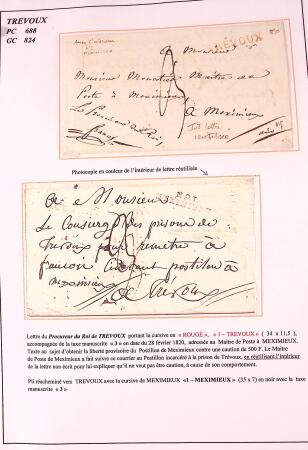 TREVOUX
PC 688
GC 824
TRÉVOUX
a Monsieur
Monsieur Monetier Maitre de
Poste à Meximieux
à Meximieux
Le Procureur du Roi
Photocopie en couleur de l'intérieur de lettre réutilisée
a Monsieur
Le Consierge des prison de
Trévoux pour remetre à
faucon postilon à
meximieux
à Trévoux
Lettre du Procureur du Roi de TREVOUX portant la cursive en « ROUGE », « 1 – TREVOUX » ( 34 x 11,5 ),
accompagnée de la taxe manuscrite « 3 » en date du 28 février 1820, adressée au Maitre de Poste à MEXIMIEUX.
Texte au sujet d'obtenir la liberté provisoire du Postillon de Meximieux contre une caution de 500 F. Le Maitre
de Poste de Meximieux a fait suivre ce courrier au Postillon incarcéré à la prison de Trévoux, en réutilisant l'intérieur
de la lettre non écrit pour lui expliquer qu'il ne veut pas être caution, à cause de son comportement.
Pli réacheminé vers TREVOUX avec la cursive de MEXIMIEUX «1 –MEXIMIEUX » (35 x 7) en noir avec la taxe
manuscrite « 3 »